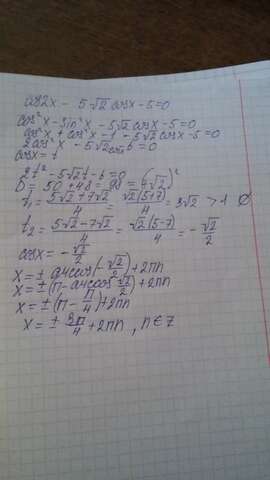 cos2x - 5√2 cosx - 5 = 0
cos²x - sin²x - 5√2 cosx - 5 = 0
cos²x + cos²x - 1 - 5√2 cosx - 5 = 0
2cos²x - 5√2 cosx - 6 = 0
cosx = t
2t² - 5√2t - 6 = 0
D = 50 + 48 = 98 = (7√2)²
t₁ = (5√2 + 7√2)/4 = √2(5+7)/4 = 3√2 > 1 ∅
t₂ = (5√2 - 7√2)/4 = √2(5-7)/4 = -√2/2
cosx = -√2/2
x = ± arccos(-√2/2) + 2πn
x = ± (π - arccos √2/2) + 2πn
x = ± (π - π/4) + 2πn
x = ± 3π/4 + 2πn, n∈Z